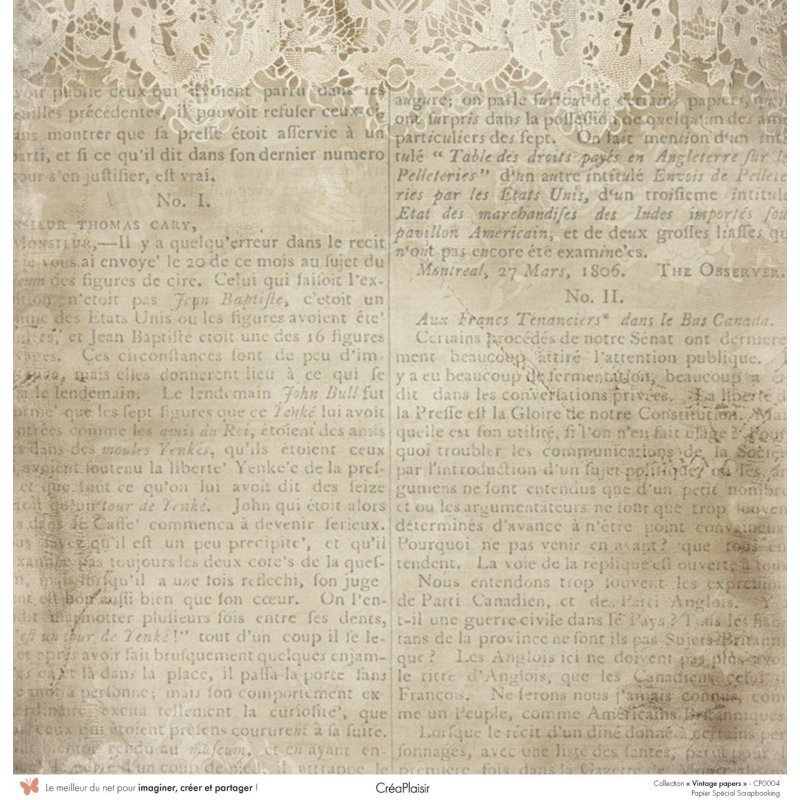 voir public ceux qui avoient paru dans les
feuilles précédentes, il pouvoit refuser ceux-ce
sans montrer que ſa preſſe étoit aſſervie à un
parti, et ſi ce qu'il dit dans ſon dernier numero
pour s'en juſtifier, eſt vrai.
No. I.
NSIEUR THOMAS CARY,
MONSIEUR,—Il y a quelqu'erreur dans le recit
que vous ai envoye' le 20 de ce mois au ſujet du
des figures de cire. Celui qui faiſoit l'ex-
n'etoit pas Jean Baptiſte, c'etoit un
des Etats Unis ou les figures avoient éte'
et Jean Baptiſte etoit une des 16 figures
Ces circonſtances ſont de peu d'im-
mais elles donnerent lieu à ce qui ſe
le lendemain. Le lendemain John Bull fut
que les ſept figures que ce Yenké lui avoit
comme les amis du Roi, etoient des amis
dans des moules Yenkés, qu'ils étoient ceux
avoient ſoutenu la liberte' Yenke'e de la preſ-
et que tout ce qu'on lui avoit dit des ſeize
un tour de Yenké. John qui étoit alors
dans le Caffe' commenca à devenir ſerieux.
qu'il eſt un peu precipite', et qu'il
pas toujours les deux cote's de la queſ-
mais lorſqu'il a une fois reflechi, ſon juge
eſt bon auſſi bien que ſon cœur. On l'en-
marmotter pluſieurs fois entre ſes dents,
c'eſt un tour de Yenké!" tout d'un coup il ſe le-
et après avoir fait bruſquement quelques enjam-
çà et là dans la place, il paſſà la porte ſans
mot à perſonne; mais ſon comportement ex-
excita tellement la curioſite', que
ceux qui étoient préſens coururent à ſa ſuite.
rendu au muſeum, et en ayant en-
un coup de il attrappe le
augure; on parle ſurtout de certains papiers, qui
ont ſurpris dans la poſſeſſion de quelqu'un des ami
particuliers des ſept. On fait mention d'un inti
tulé " Table des droits payés en Angleterre ſur les
Pelleteries" d'un autre intitulé Envois de Pellete
ries par les Etats Unis, d'un troiſieme intitulé
Etat des marchandiſes des Indes importés ſous
pavillon Americain, et de deux groſſes liaſſes qui
n'ont pas encore été examine'es.
Montreal, 27 Mars, 1806. THE OBSERVER.
No. II.
Aux Francs Tenanciers* dans le Bas Canada.
Certains procédés de notre Sénat ont derniere
ment beaucoup attiré l'attention publique.
y a eu beaucoup de fermentation, beaucoup a
dit dans les converſations privées. La liberté de
la Preſſe eſt la Gloire de notre Conſtitution. Mais
quelle eſt ſon utilité, ſi l'on n'en fait uſage? Pour
quoi troubler les communications de la Société
par l'introduction d'un ſujet politique, où les ar
gumens ne ſont entendus que d'un petit nombre
et ou les argumentateurs ne ſont que trop ſouven
déterminés d'avance à n'être point convaincus
Pourquoi ne pas venir en avant? que tous en
tendent. La voie de la réplique eſt ouverte à tous
Nous entendons trop ſouvent les expreſſion
de Parti Canadien, et de Parti Anglois. Y
t-il une guerre civile dans le Pays? Tous les habi
tans de la province ne ſont ils pas Sujets Britanni
que? Les Anglois ici ne doivent pas plus avoir
le titre d'Anglois, que les Canadiens celui de
Francois. Ne ſerons nous jamais connus, com
me un Peuple, comme Américains Britanniques
Lorſque le récit d'un diné donné à certains per
ſonnages, avec une liste des ſantés, parut pour la
premiere fois dans la Gazette de
Le meilleur du net pour imaginer, créer et partager !
CréaPlaisir
Collection « Vintage papers » - CP0004
Papier Spécial Scrapbooking